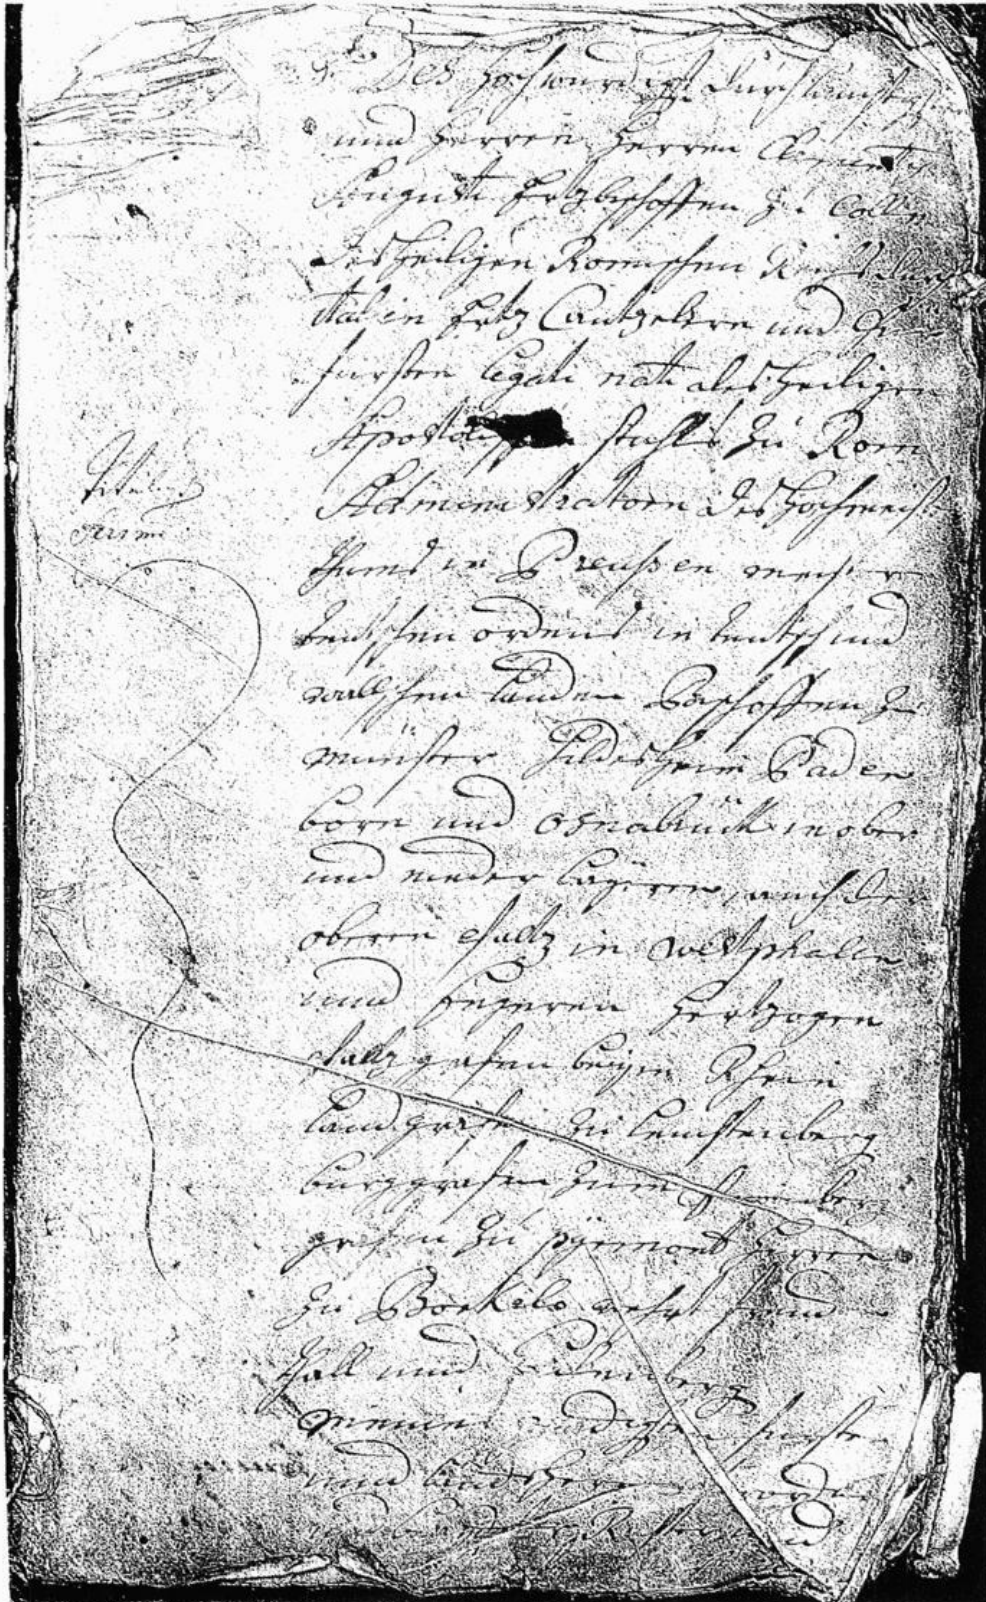 Des hochwurdigst durchleuchtigst
und herren herren Clementis
Augusti Ertzbischoffen zu Cölln
des heiligen Romischen Reichs durch
Italien Ertz Cantzelere und Chur
fursten legati nati des heiligen
Apostolischen stuhls zu Rom
Administratorn des hochmeister
thumbs in Preußen meister
teutschen ordens in teutsch und
wallischen landen Bischoffen zu
Münster Hildesheim Pader
born und Oßnabrück in ober
und nieder bayeren, auch der
oberen pfaltz in Westphalen
und Engeren hertzogen
pfaltzgrafen beym Rhein
landgrafen zu leuchtenberg
burggrafen zum Stromberg
grafen zu pyrmont herren
zu Borkelo werht freuden
thall und Eulenberg
meines gnädigsten fursten
und landtherren
und
Tituli
Sermi